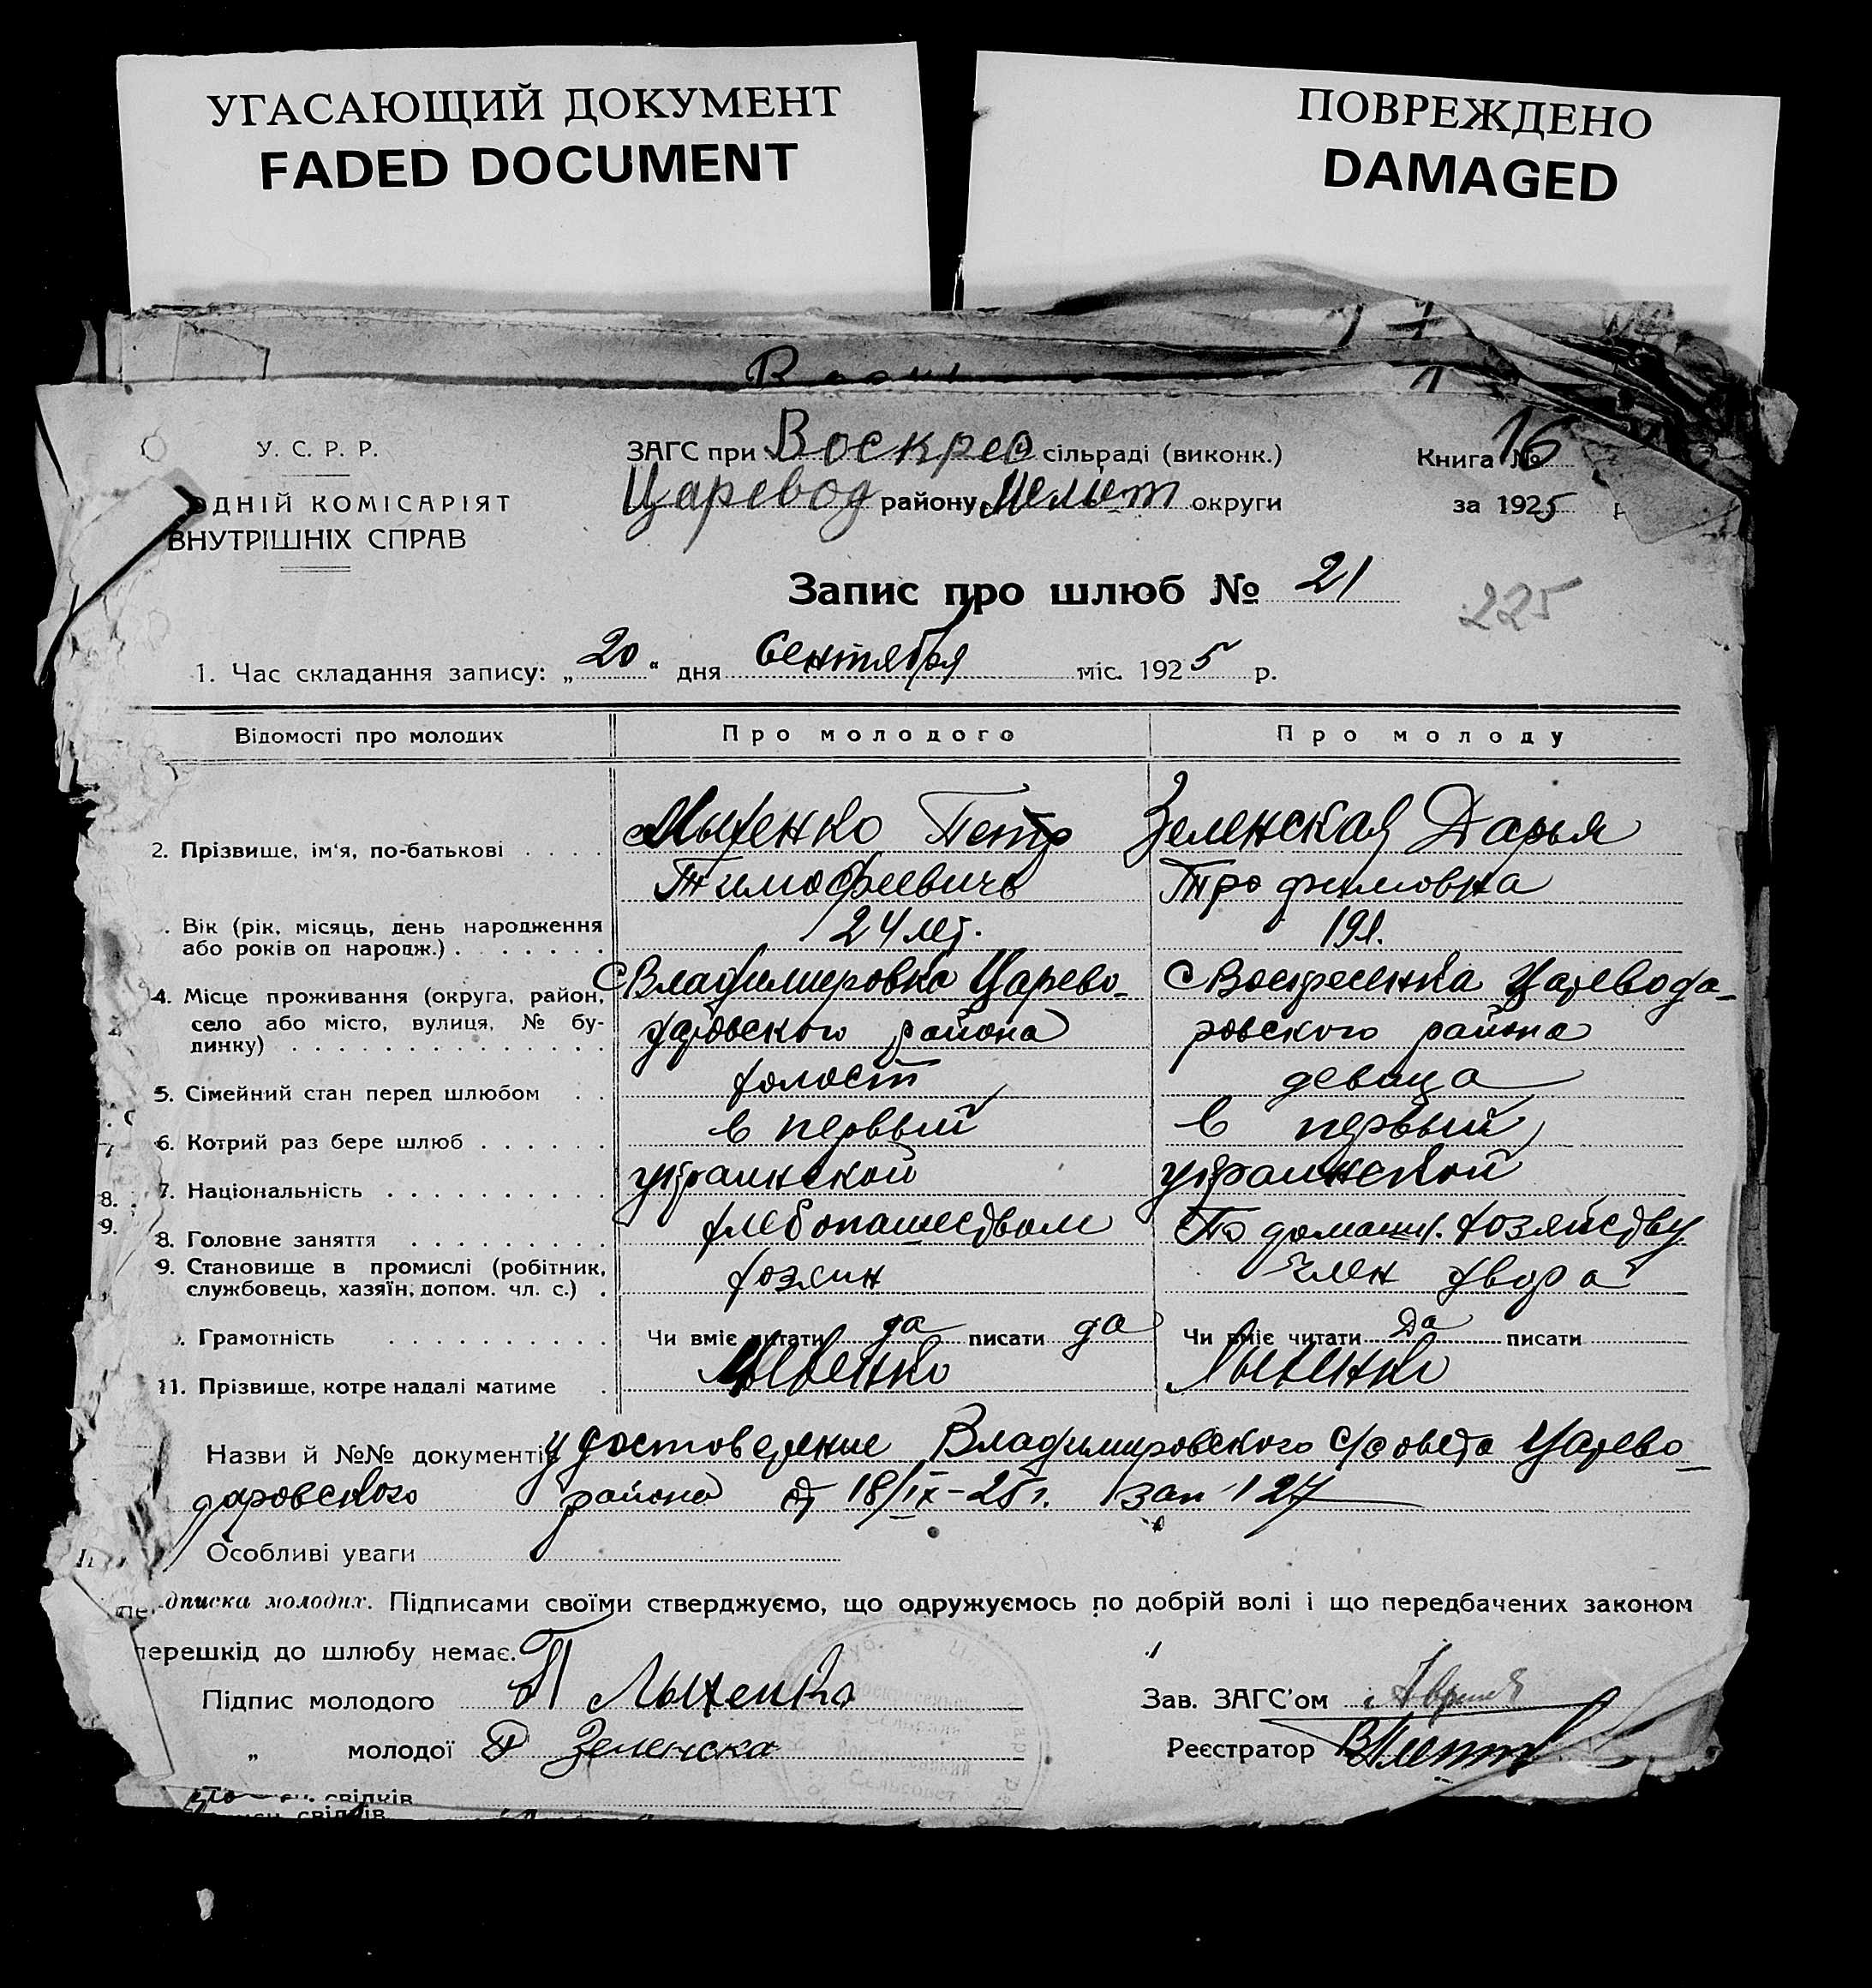 УГАСАЮЩИЙ ДОКУМЕНТ
FADED DOCUMENT
ПОВРЕЖДЕНО
DAMAGED
У. С. Р. Р.
ОДНІЙ КОМІСАРІЯТ
ВНУТРІШНІХ СПРАВ
ЗАГС при Воскрес сільраді (виконк.)
Царевод району Мелит округи
Книга № 16
за 1925
Запис про шлюб № 21
225
1. Час складання запису: „ 20 “ дня Сентября міс. 1925 р.
Відомості про молодих Про молодого Про молоду
2. Прізвище, ім'я, по-батькові . . . . Петр Зеленская Дарья
Тимофеевичь Трофимовна
. Вік (рік, місяць, день народження
або років од народж.) . . . . . . . 24 лет. 19 л.
4. Місце проживання (округа, район, с Владимировка Царево- с Воскресенка Царевода-
село або місто, вулиця, № бу- даровского района ровского района
динку) . . . . . . . . . . . . . .
5. Сімейний стан перед шлюбом . . холост девица
6. Котрий раз бере шлюб . . . . . . в первый в первый
7. Національність . . . . . . . . . . украинской украинской
8. Головне заняття . . . . . . . . . хлебопашеством По домашн. хозяйству
9. Становище в промислі (робітник,
службовець, хазяїн, допом. чл. с.) . хозяин член двора
. Грамотність . . . . . . . . . . Чи вміє читати да писати да Чи вміє читати да писати
11. Прізвище, котре надалі матиме .
Назви й №№ документів удостоверение Владимировского с/совета Царево-
даровского района от 18/IX-25 г. за № 127
Особливі уваги
дписка молодих. Підписами своїми стверджуємо, що одружуємось по добрій волі і що передбачених законом
перешкід до шлюбу немає.
Підпис молодого П Зав. ЗАГС'ом
„ молодої Д Зеленска Реєстратор
свідків
свідків